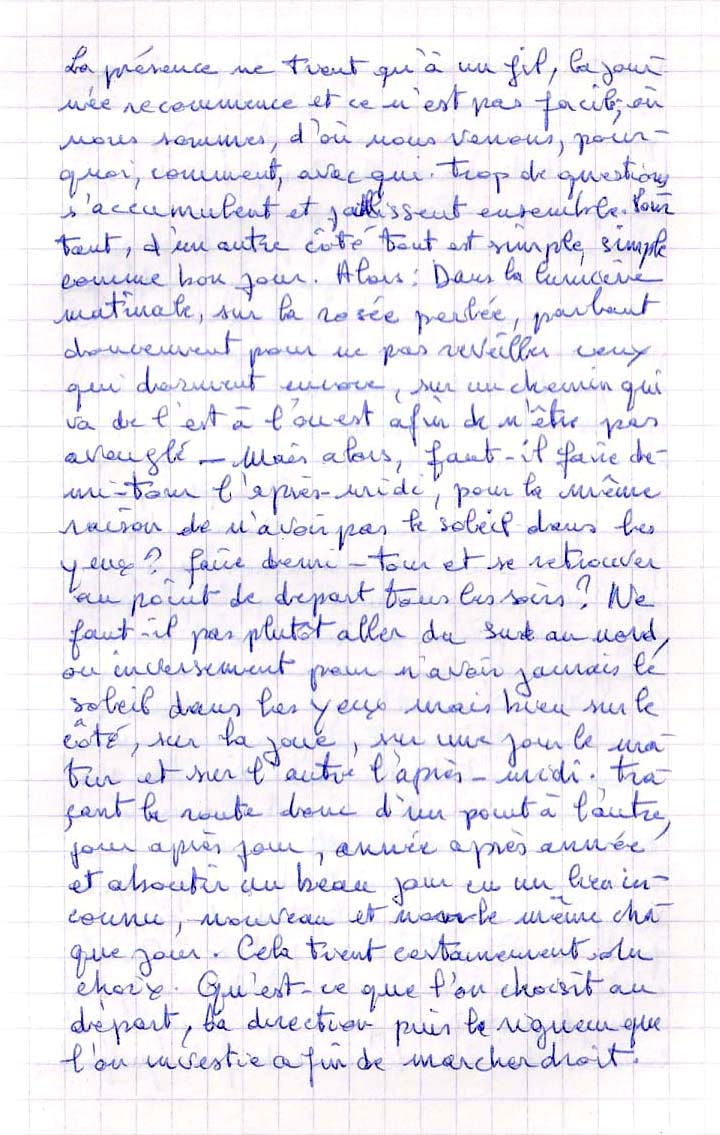 La présence ne tient qu'à un fil, la jour-
née recommence et ce n'est pas facile, où
nous sommes, d'où nous venons, pour-
quoi, comment, avec qui. trop de questions
s'accumulent et jaillissent ensemble. Pour
tant, d'un autre côté tout est simple, simple
comme bon jour. Alors : Dans la lumière
matinale, sur la rosée perlée, parlant
doucement pour ne pas réveiller ceux
qui dorment encore, sur un chemin qui
va de l'est à l'ouest afin de n'être pas
aveuglé _ Mais alors, faut-il faire de-
mi-tour l'après-midi, pour la même
raison de n'avoir pas le soleil dans les
yeux ? faire demi-tour et se retrouver
au point de départ tous les soirs ? Ne
faut-il pas plutôt aller du sud au nord,
ou inversement pour n'avoir jamais le
soleil dans les yeux mais bien sur le
côté, sur la joue, sur une joue le ma-
tin et sur l'autre l'après-midi. Tra-
çant la route donc d'un point à l'autre,
jour après jour, année après année
et aboutir un beau jour en un lieu in-
connu, nouveau et non le même cha-
que jour. Cela tient certainement du
choix. Qu'est-ce que l'on choisit au
départ, la direction puis la rigueur que
l'on investie afin de marcher droit.